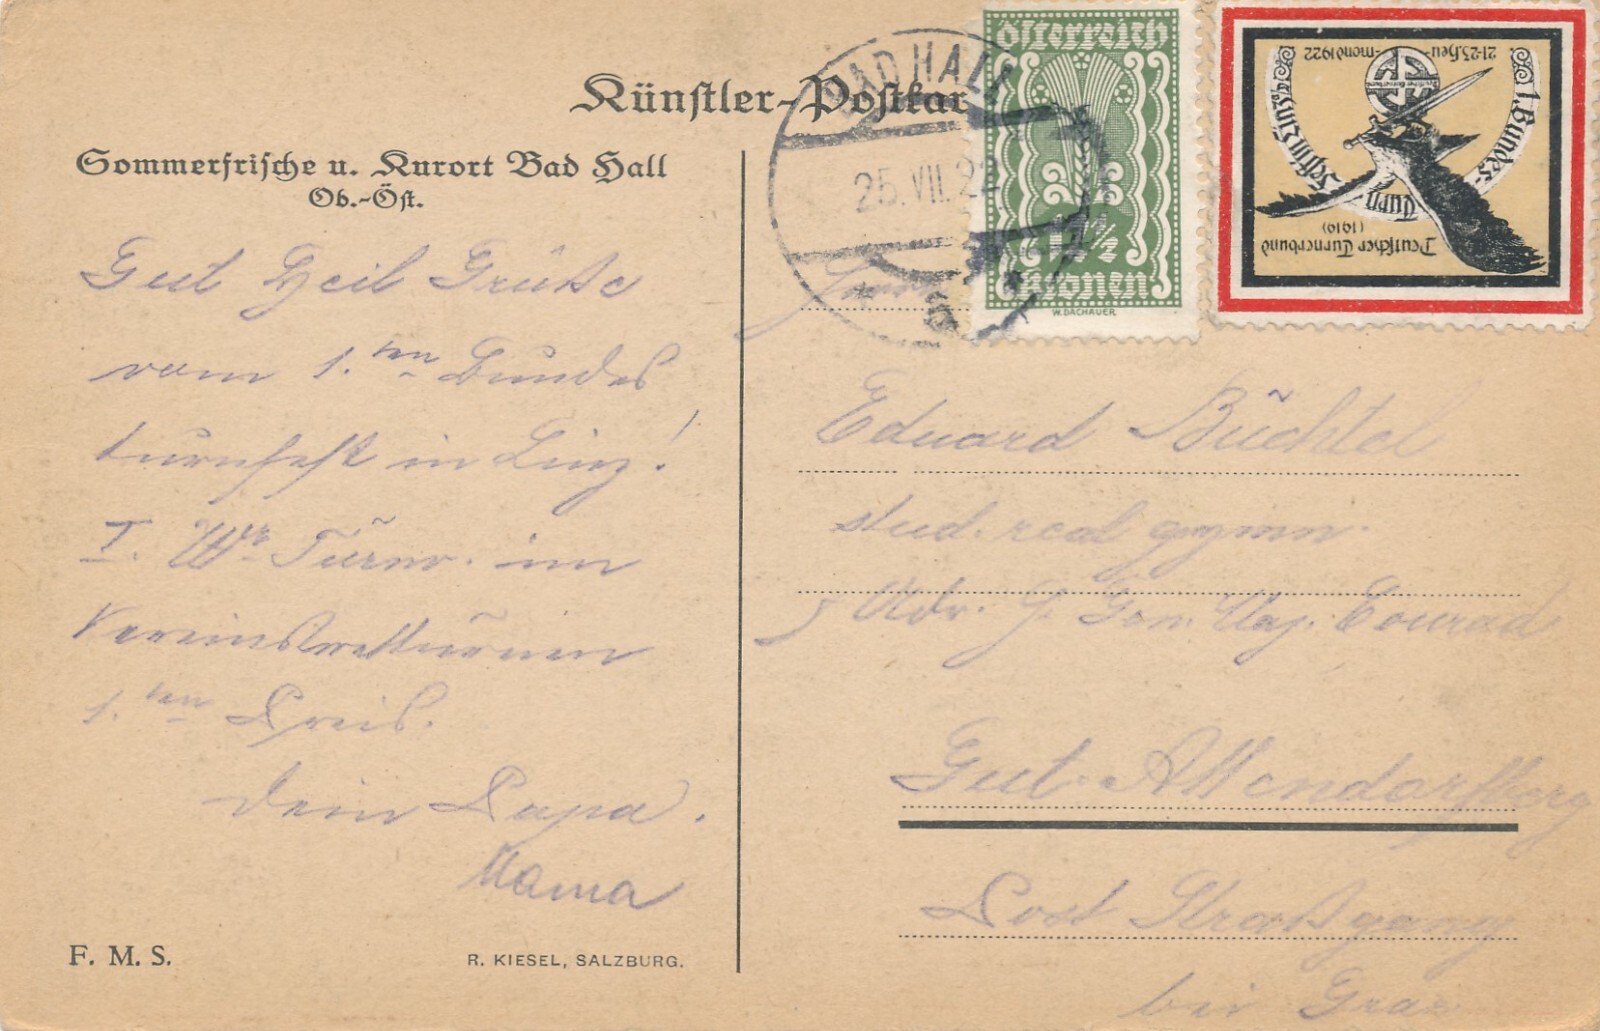 Künstler-Postkar
Sommerfrische u. Kurort Bad Hall
Ob.-Öst.
BAD HALL
25.VII.22
Österreich
12½
Kronen
W. DACHAUER
1. Bundes-
Turn
Fest in Linz a/D.
21-23. Heu-
-mond 1922
Deutscher Turnerbund
(1919)
Gut Heil Grüße
vom 1.ten Bundes
turnfest in Linz!
I. Wr. Turnv. im
Vereinswetturnen
1.ten Preis.
Dein Papa.
Mama
Eduard Büchtel
stud. real gymn.
Adr. Conrad
Gut Attendorfberg
Post Straßgang
bei Graz
F. M. S.
R. KIESEL, SALZBURG.